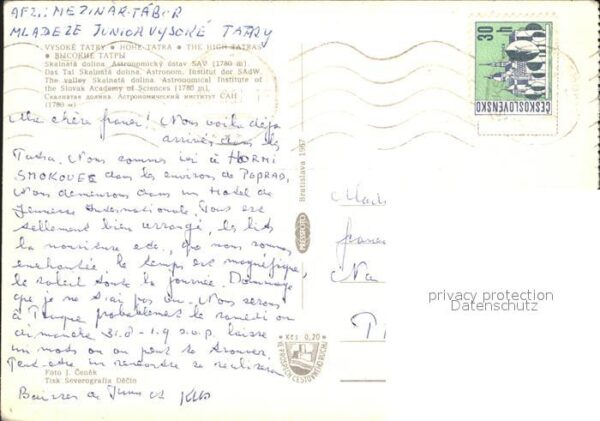 AFZ.: MEZINÁR. TÁBOR
MLADEZE JUNIOR VYSOKÉ TATRY
VYSOKÉ TATRY • HOHE TATRA • THE HIGH TATRAS
• ВЫСОКИЕ ТАТРЫ
Skalnatá dolina. Astronomický ústav SAV (1780 m)
Das Tal Skalnatá dolina. Astronom. Institut der SAdW.
The valley Skalnatá dolina. Astronomical Institute of
the Slovak Academy of Sciences (1780 m).
Скалнатая долина. Астрономический институт САН
(1780 м)
30
ČESKOSLOVENSKO
Ma chère ! Nous voilà déjà
arrivés dans les
Tatra. Nous sommes ici à HORNI
SMOKOVEC dans les environs de POPRAD,
Nous demeurons dans un Hotel de
Jeunesse Internationale. Tous est
tellement bien arrangé, les lits
la nourriture etc., que nous sommes
enchantée le temps est magnifique,
le soleil toute la journée. Dommage
que je ne t'ai pas vu. Nous serons
à Prague probablement le samedi ou
dimanche 31.8 - 1.9 s.v.p. laisse
un mot où on peut te trouver.
Peut-être un rencontre se realisera
Foto J. Čeněk
Tisk Severografia Děčín
Baisers de
Bratislava 1967
PRESSFOTO
Kčs 0,20
privacy protection
Datenschutz